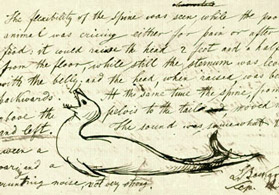 The flexibility of the spine was seen while the
animal was crying either for pain or after
food: it could raise the head 2 feet and a half
from the floor, while still the sternum was
with the belly and the head, when raised was
backwards. At the same time the spine, from
above the pelvis to the tail moved
and left. The sound was somewhat
between a
roar and a
grunting noise not very strong.